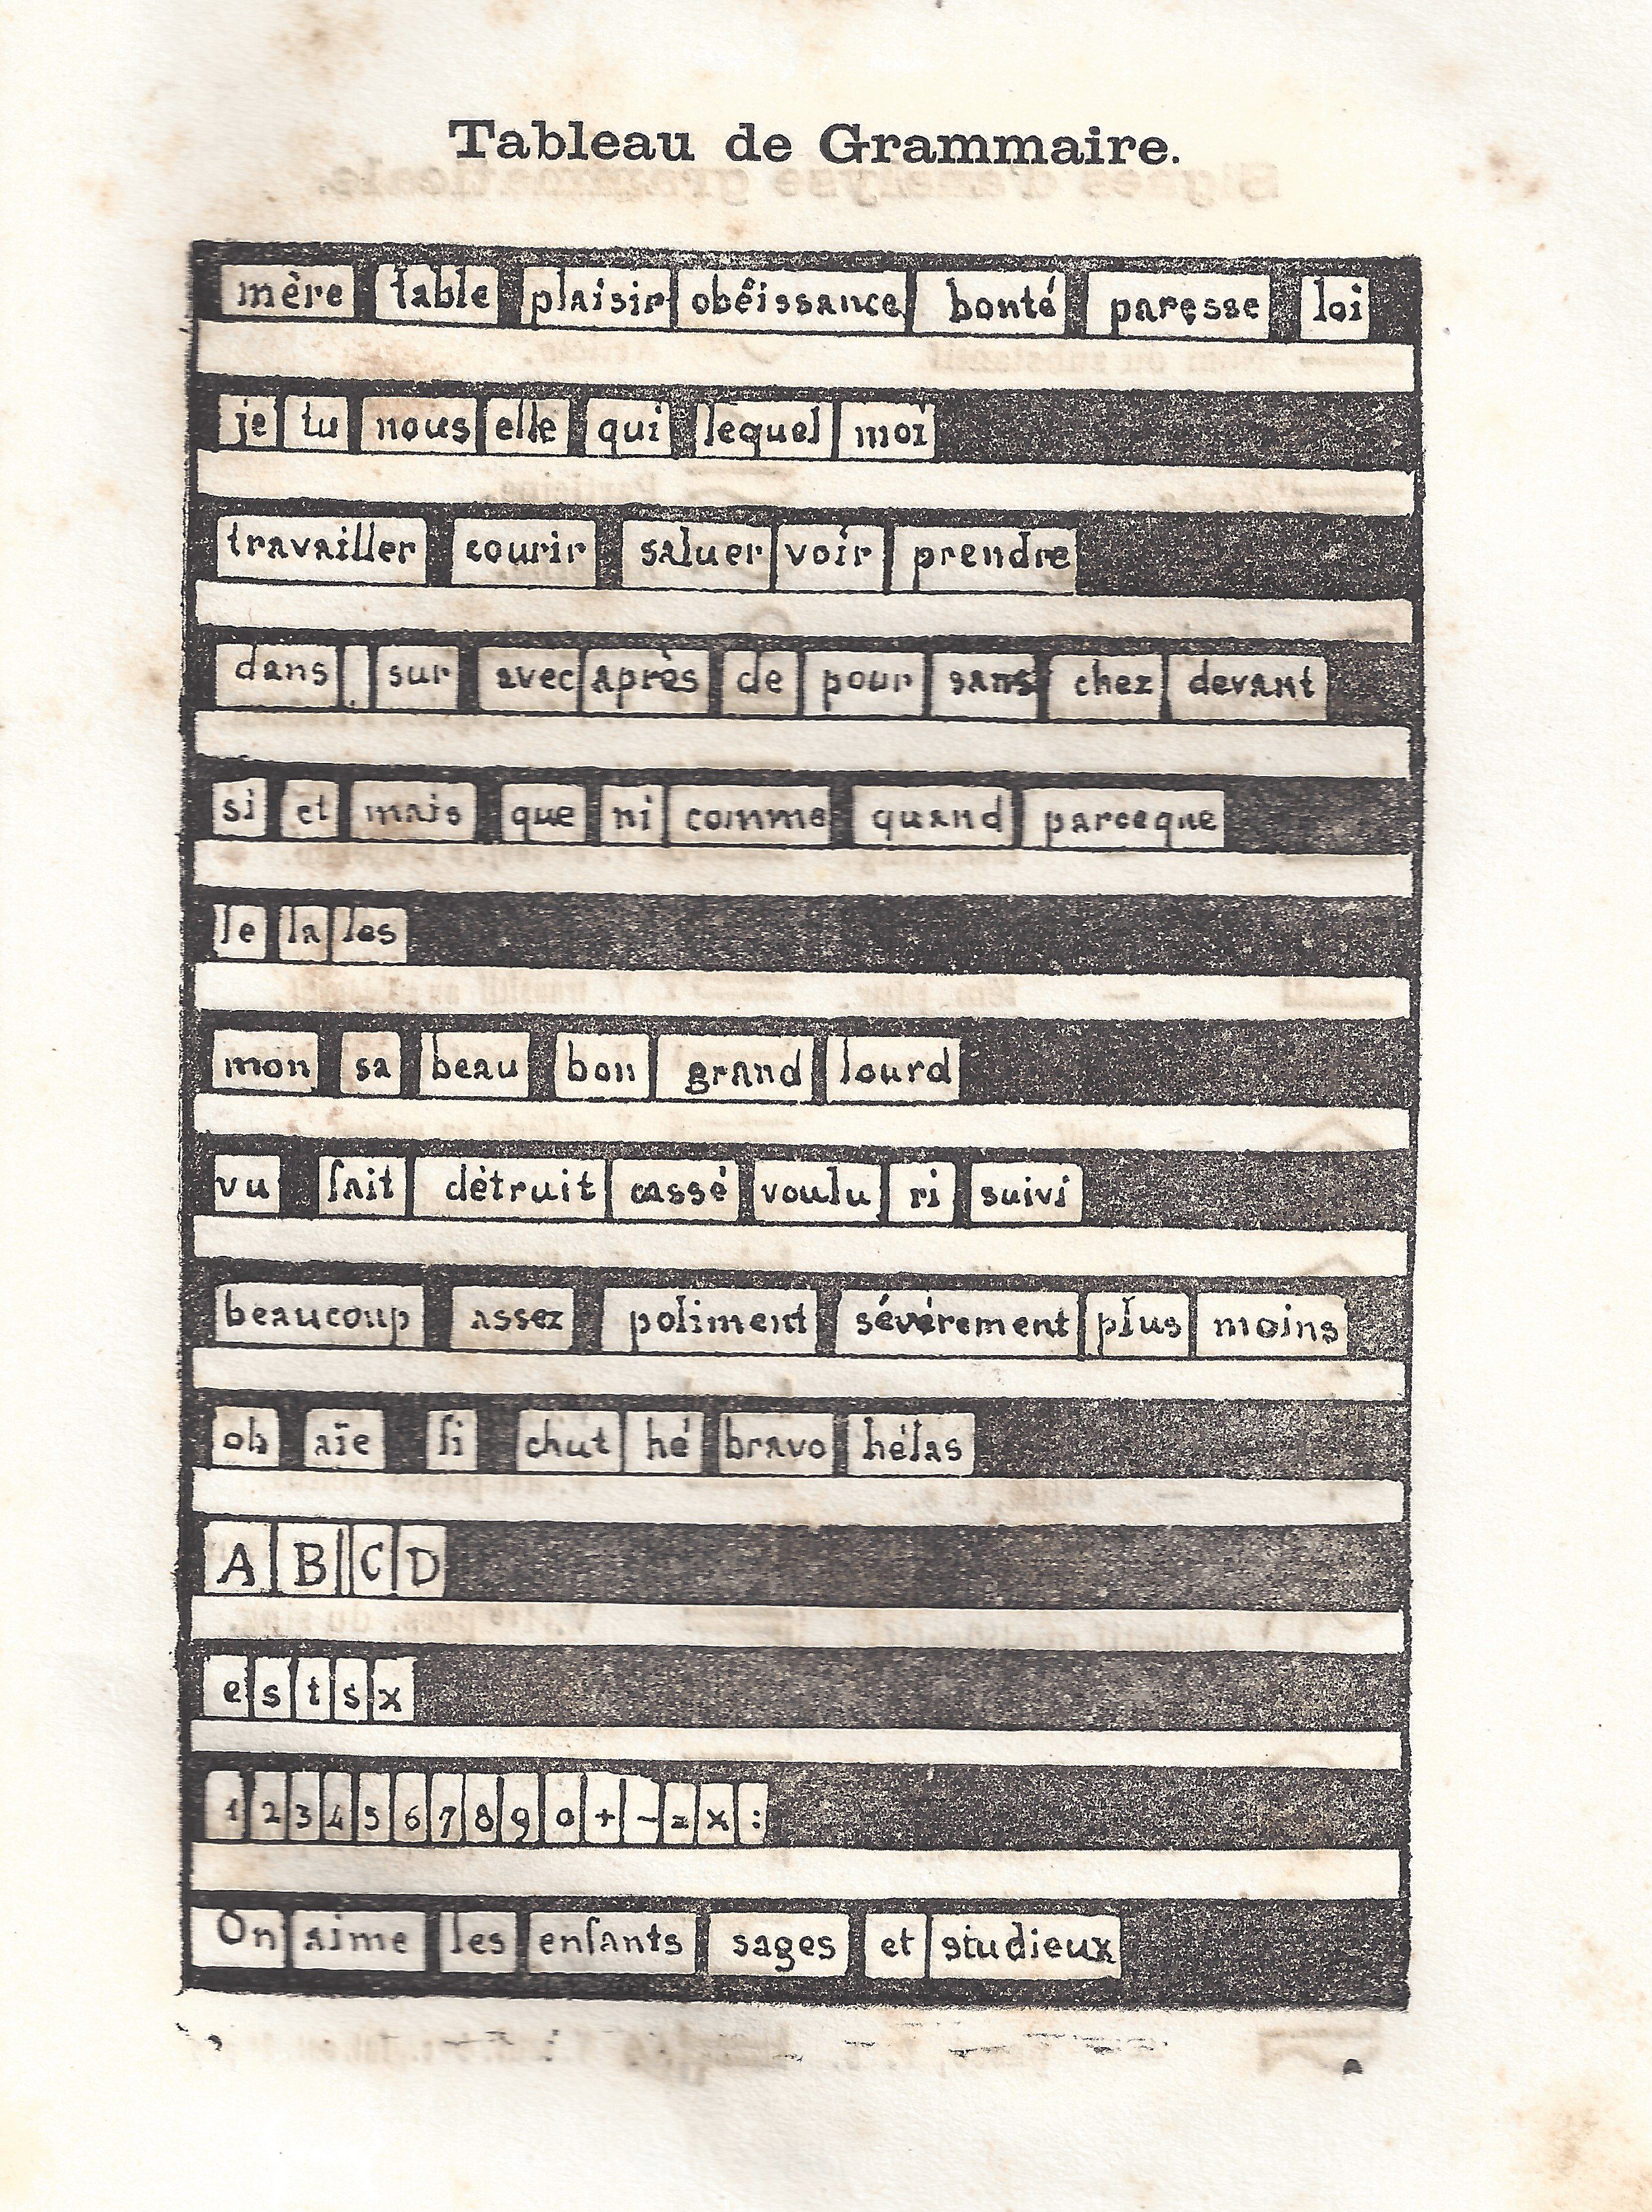 Tableau de Grammaire.
mère table plaisir obéissance bonté paresse loi
je tu nous elle qui lequel moi
travailler courir saluer voir prendre
dans sur avec après de pour sans chez devant
si et mais que ni comme quand parceque
le la les
mon sa beau bon grand lourd
vu fait détruit cassé voulu ri suivi
beaucoup assez poliment sévèrement plus moins
oh aïe fi chut hé bravo hélas
A B C D
e s t s x
1 2 3 4 5 6 7 8 9 0 + - = x :
On aime les enfants sages et studieux